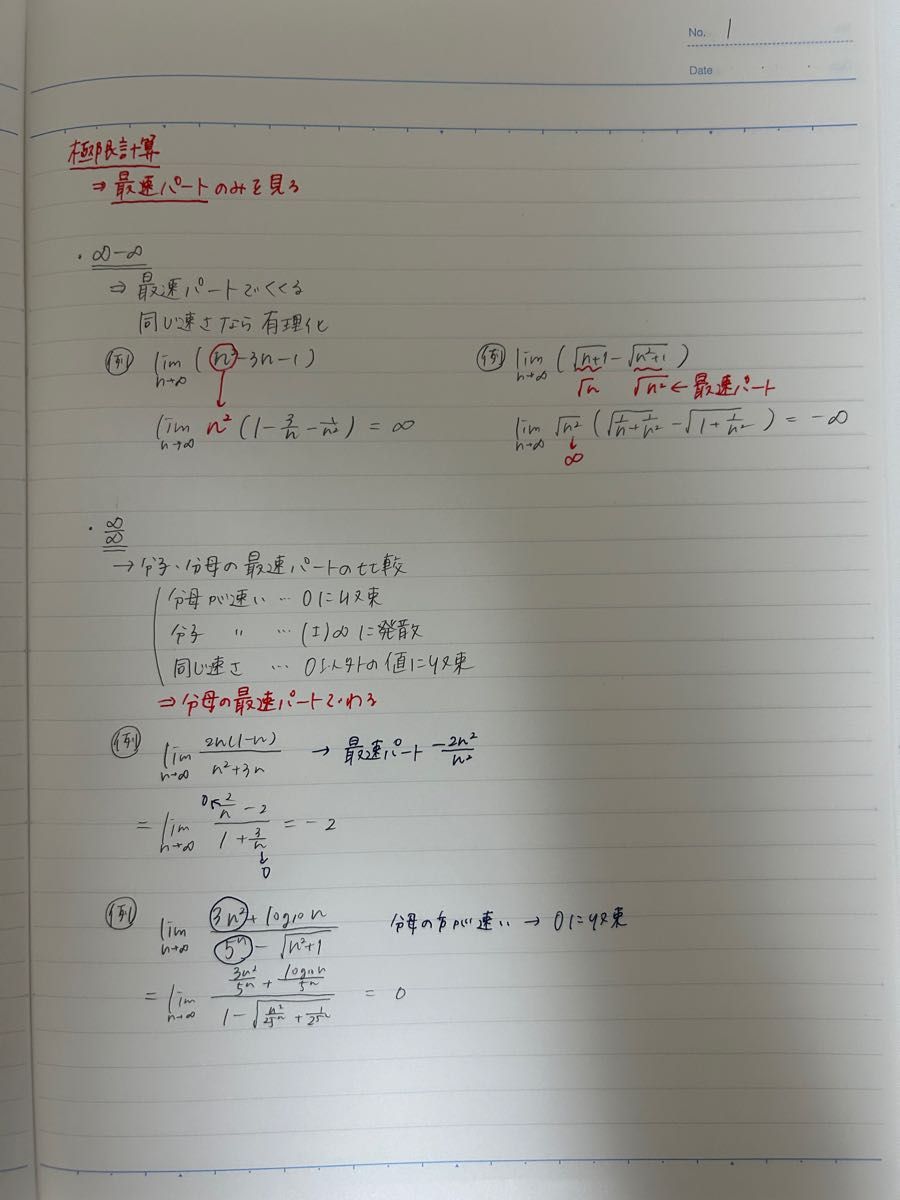 No. 1
Date
極限計算
⇒ 最速パートのみを見る
・∞-∞
⇒ 最速パートでくくる
同じ速さなら有理化
例 lim_{n→∞} (n²-3n-1)
lim_{n→∞} n² (1 - 3/n - 1/n²) = ∞
例 lim_{n→∞} (√(n+1) - √(n²+1))
√n √n² ← 最速パート
lim_{n→∞} √n² (√(1/n + 1/n²) - √(1 + 1/n²)) = -∞
↓
∞
・∞/∞
→ 分子・分母の最速パートの比較
分母が速い … 0に収束
分子 〃 … (±)∞に発散
同じ速さ … 0以外の値に収束
⇒ 分母の最速パートでわる
例 lim_{n→∞} 2n(1-n)/(n²+3n) → 最速パート -2n²/n²
= lim_{n→∞} (2/n - 2)/(1 + 3/n) = -2
0
↓
0
例 lim_{n→∞} (3n² + log₁₀n)/(5ⁿ - √(n²+1)) 分母の方が速い → 0に収束
= lim_{n→∞} (3n²/5ⁿ + log₁₀n/5ⁿ)/(1 - √(n²/25ⁿ + 1/25ⁿ)) = 0